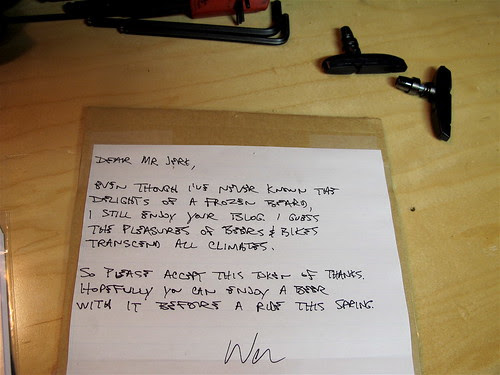 DEAR MR JERK,
EVEN THOUGH I'VE NEVER KNOWN THE
DELIGHTS OF A FROZEN BEARD,
I STILL ENJOY YOUR BLOG. I GUESS
THE PLEASURES OF BEERS & BIKES
TRANSCEND ALL CLIMATES.
SO PLEASE ACCEPT THIS TOKEN OF THANKS.
HOPEFULLY YOU CAN ENJOY A BEER
WITH IT BEFORE A RIDE THIS SPRING.